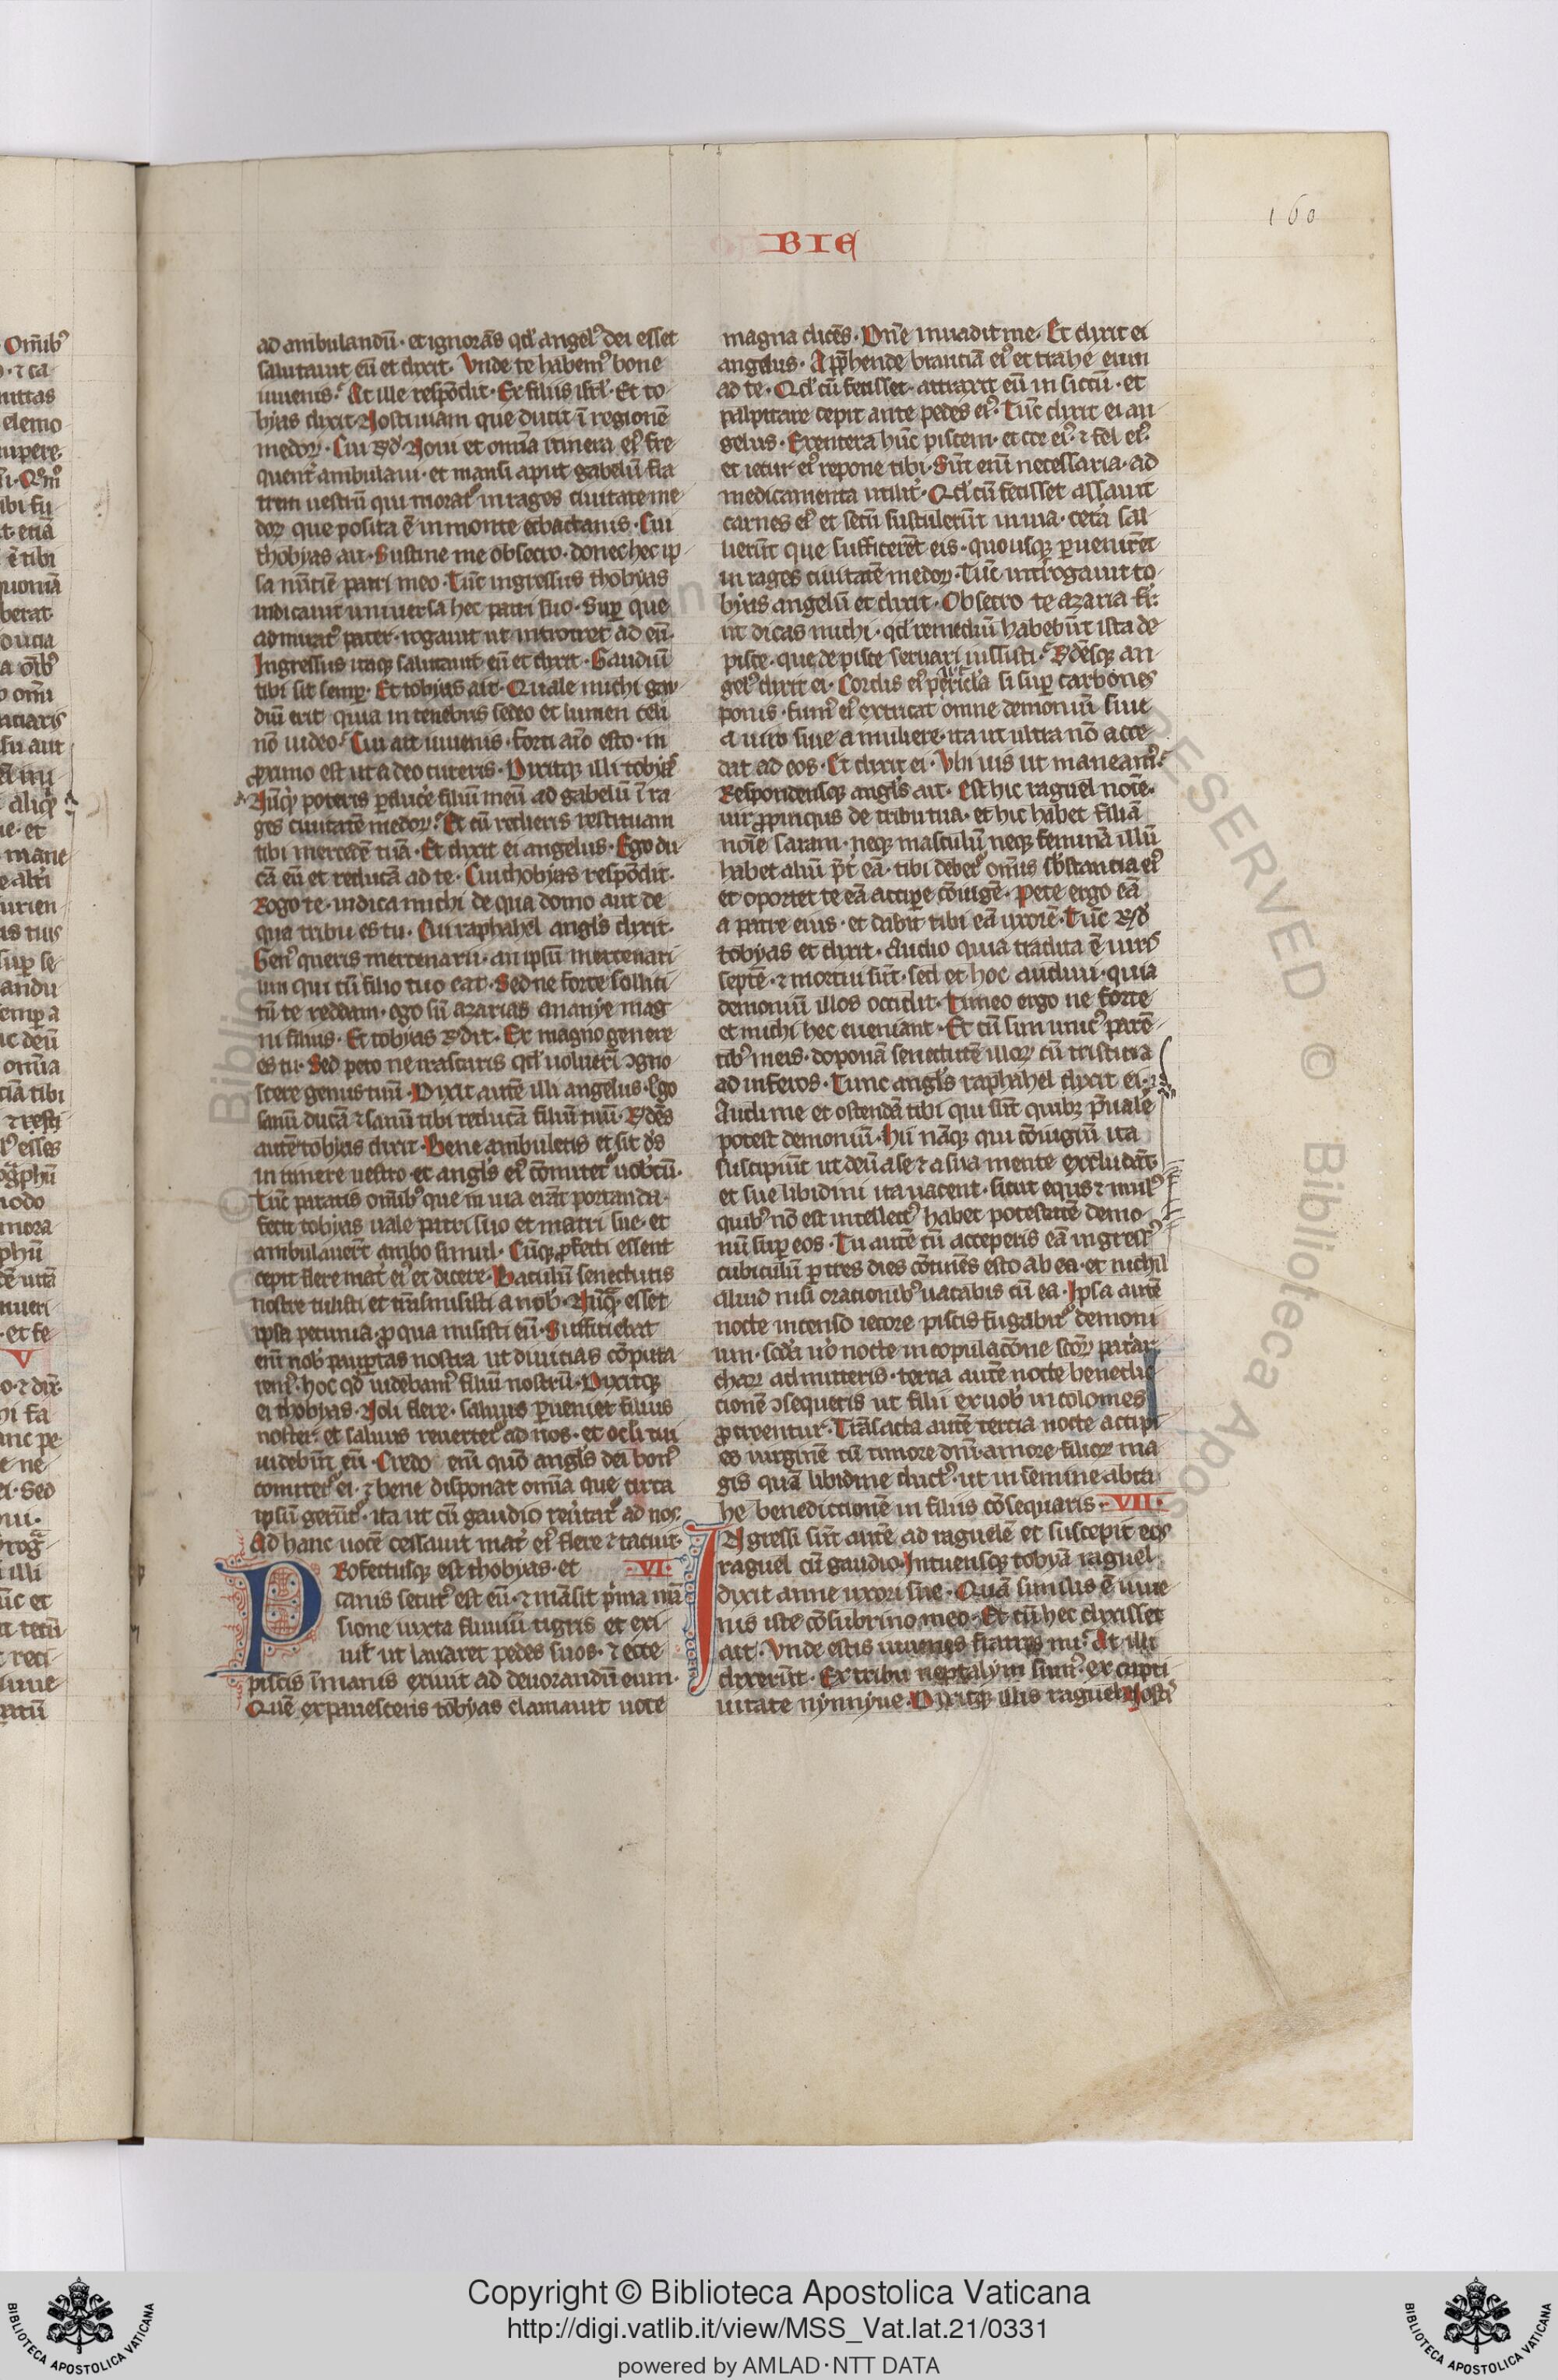 BIE
160
ad ambulandū· et ignorās qd' angelꝰ dei esset
salutauit eū et dixit· Vnde te habemꝰ bone
iuuenis? At ille respōdit· Ex filiis isrl'· Et to-
byas dixit· Nosti uiam que ducit ī regionē
medoꝝ· Cui Rd'· Noui et om̄ia itinera eiꝰ fre-
quent᷑ ambulaui· et mansi aput gabelū fra
trem uestrū qui morat᷑ in rages ciuitate me-
doꝝ que posita ē in monte ecbactanis· Cui
thobyas ait· Sustine me obsecro· donec hec ip-
sa nūtiē patri meo· Tūc ingressus thobyas
indicauit uniuersa hec patri suo· Suꝑ que
admiratꝰ pater· rogauit ut introiret ad eū·
Ingressus itaqꝫ salutauit eū et dixit· Gaudiū
tibi sit semꝑ· Et tobyas ait· Quale michi gau-
diū erit quia in tenebris sedeo et lumen celi
nō uideo? Cui ait iuuenis· forti aīo esto· in
ꝓximo est ut a deo cureris· Dixitqꝫ illi tobyas
Nūqꝫ poteris ꝑducē filiū meū ad gabelū ī ra
ges ciuitatē medoꝝ? Et cū redieris restituam
tibi mercedē tuā· Et dixit ei angelus· Ego du
cā eū et reducā ad te· Cui thobyas respōdit·
Rogo te· indica michi de qua domo aut de
qua tribu es tu· Cui raphahel angl's dixit·
Genꝰ queris mercenarii· an ipsū mercenari
um qui cū filio tuo eat· Sed ne forte solliti
tū te reddam· ego sū azarias ananye mag
ni filius· Et tobyas Rdit· Ex magno genere
es tu· Sed peto ne irascaris qd' uoluerī ꝯgno
scere genus tuū· Dixit autē illi angelus· Ego
sanū ducā ⁊ sanū tibi reducā filiū tuū· Rdēs
autē tobyas dixit· Bene ambuletis et sit d's
in itinere uestro· et angl's eiꝰ cōmitet᷑ uob'cū·
Tūc paratis om̄ibꝰ que in uia erāt portanda·
fecit tobyas uale patri suo et matri sue· et
ambulauer̄t ambo simul· Cūqꝫ ꝓfecti essent
cepit flere mat᷑ eiꝰ et dicere· Baculū senectutis
nostre tulisti et trāsmisisti a nob'· Nūqꝫ esset
ipsa pecunia· ꝓ qua misisti eū· Sufficiebat
enī nob' pauꝑtas nostra ut diuitias cōputa
remꝰ· hoc qd' uidebamꝰ filiū nostrū· Dixitqꝫ
ei thobyas· Noli flere· saluus ꝑueniet filius
noster· et saluus reuertet᷑ ad nos· et oc'li tui
uidebūt eū· Credo enī quō angl's dei bonꝰ
comitet᷑ ei· ⁊ bene disponat om̄ia que circa
ipsū gerūt᷑· ita ut cū gaudio reutat᷑ ad nos·
Ad hanc uocē cessauit mat᷑ eiꝰ flere ⁊ tacuit·
PRofectusqꝫ est thobyas· et ·VI·
canis secutꝰ est eū· ⁊ māsit p̄ma mā
sione iuxta fluuiū tigris et exi-
uit ut lauaret pedes suos· ⁊ ecce
piscis īmanis exiuit ad deuorandū eum·
Quē expauescens tobyas clamauit uoce
magna dicēs· Dn̄e inuadit me· Et dixit ei
angelus· Apphende branciā eiꝰ et trahe eum
ad te· Qd' cū fecisset· attraxit eū in siccū· et
palpitare cepit ante pedes eiꝰ· Tūc dixit ei an-
gelus· Exentera hūc piscem· et cor eiꝰ· ⁊ fel eiꝰ·
et iecur eiꝰ repone tibi· Sūt enī necessaria· ad
medicamenta utilit᷑· Qd' cū fecisset assauit
carnes eiꝰ et secū sustulerūt in uia· cetā sal
lierūt que sufficerēt eis· quousqꝫ ꝑuenirēt
in rages ciuitatē medoꝝ· Tūc int᷑rogauit to-
byas angelū et dixit· Obsecro te azaria fr̄·
ut dicas michi· qd' remediū habebūt ista de
pisce· que de pisce seruari iussisti? Rdēsqꝫ an
gelꝰ dixit ei· Cordis eiꝰ pticl'a si suꝑ carbones
ponis· fumꝰ eiꝰ extricat omne demoniū siue
a uiro siue a muliere· ita ut ultra nō acce
dat ad eos· Et dixit ei· Vbi uis ut maneamꝰ?
Respondensqꝫ angl's ait· Est hic raguel noīe·
uir ꝓpinqus de tribu tua· et hic habet filiā
noīe saram· neqꝫ masculū neqꝫ feminā illū
habet aliū p̄t eā· tibi debet᷑ om̄is sb'stantia eiꝰ
et oportet te eā accipe cōiugē· Pete ergo eā
a patre eius· et dabit tibi eā uxorē· Tūc Rd'
tobyas et dixit· Audio quia tradita ē uiris
septē· ⁊ mortui sūt· sed et hoc audiui· quia
demoniū illos occidit· Timeo ergo ne forte
et michi hec eueniant· Et cū sim unicꝰ parē-
tibꝰ meis· doponā senectutē illoꝝ cū tristitia
ad inferos· Tunc angl's raphahel dixit ei·
Audi me et ostendā tibi qui sūt quibꝫ p̄uale
potest demoniū· Hii nāqꝫ qui cōiugiū ita
suscipiūt ut deū a se ⁊ a sua mente excludāt·
et sue libidini ita uacent· sicut equs ⁊ mulꝰ
quibꝰ nō est intellectꝰ habet potestatē demo
niū suꝑ eos· Tu autē cū acceperis eā ingressꝰ
cubiculū ꝑ tres dies cōtinēs esto ab ea· et nichil
aliud nisi orationibꝰ uacabis cū ea· Ipsa autē
nocte incenso iecore piscis fugabit᷑ demoni
um· scd'a uō nocte in copulacōne scōꝝ pat᷑ar
chaꝝ admitteris· tercia autē nocte benedic
tionē ꝯsequeris ut filii ex uob' incolomes
ꝓcreentur· Trāsacta autē tercia nocte accipi
es uirginē cū timore dn̄i· amore filioꝝ ma
gis quā libidine ductꝰ· ut in semine abra
he benedictionē in filiis cōsequaris· ·VII·
INgressi sūt autē ad raguelē et suscepit eos
raguel cū gaudio· Intuensqꝫ tobyā raguel
dyxit anne uxori sue· Quā similis ē iuue
nis iste cōsubrino meo· Et cū hec dixisset
ait· Vnde estis iuuenes fratres nr̄i? At illi
dixerūt· Ex tribu neptalym sumꝰ· ex capti
uitate nynnyue· Dixitqꝫ illis raguel· Nostis
Copyright © Biblioteca Apostolica Vaticana
http://digi.vatlib.it/view/MSS_Vat.lat.21/0331
powered by AMLAD·NTT DATA
BIBLIOTECA APOSTOLICA VATICANA
BIBLIOTECA APOSTOLICA VATICANA